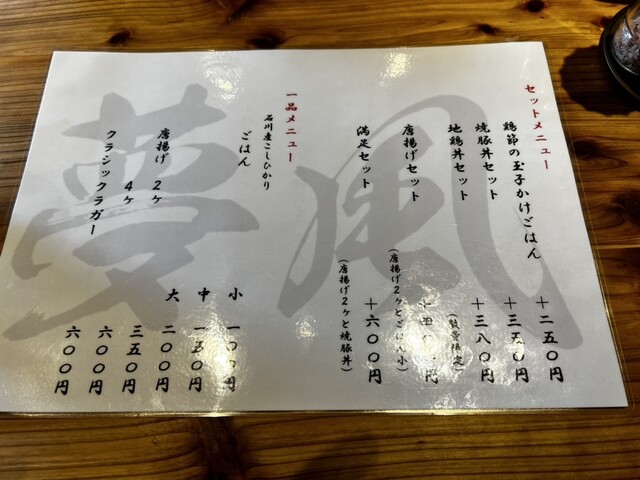 セットメニュー
鶏節の玉子かけごはん +二五〇円
焼豚丼セット +三五〇円
地鶏丼セット (数量限定) +三八〇円
唐揚げセット (唐揚げ2ケとごはん小) 円
満足セット (唐揚げ2ケと焼豚丼) +六〇〇円
一品メニュー
石川産こしひかり
ごはん 小 一〇〇円
中 一五〇円
大 二〇〇円
唐揚げ 2ケ 三五〇円
4ケ 六〇〇円
クラシックラガー 六〇〇円
夢風